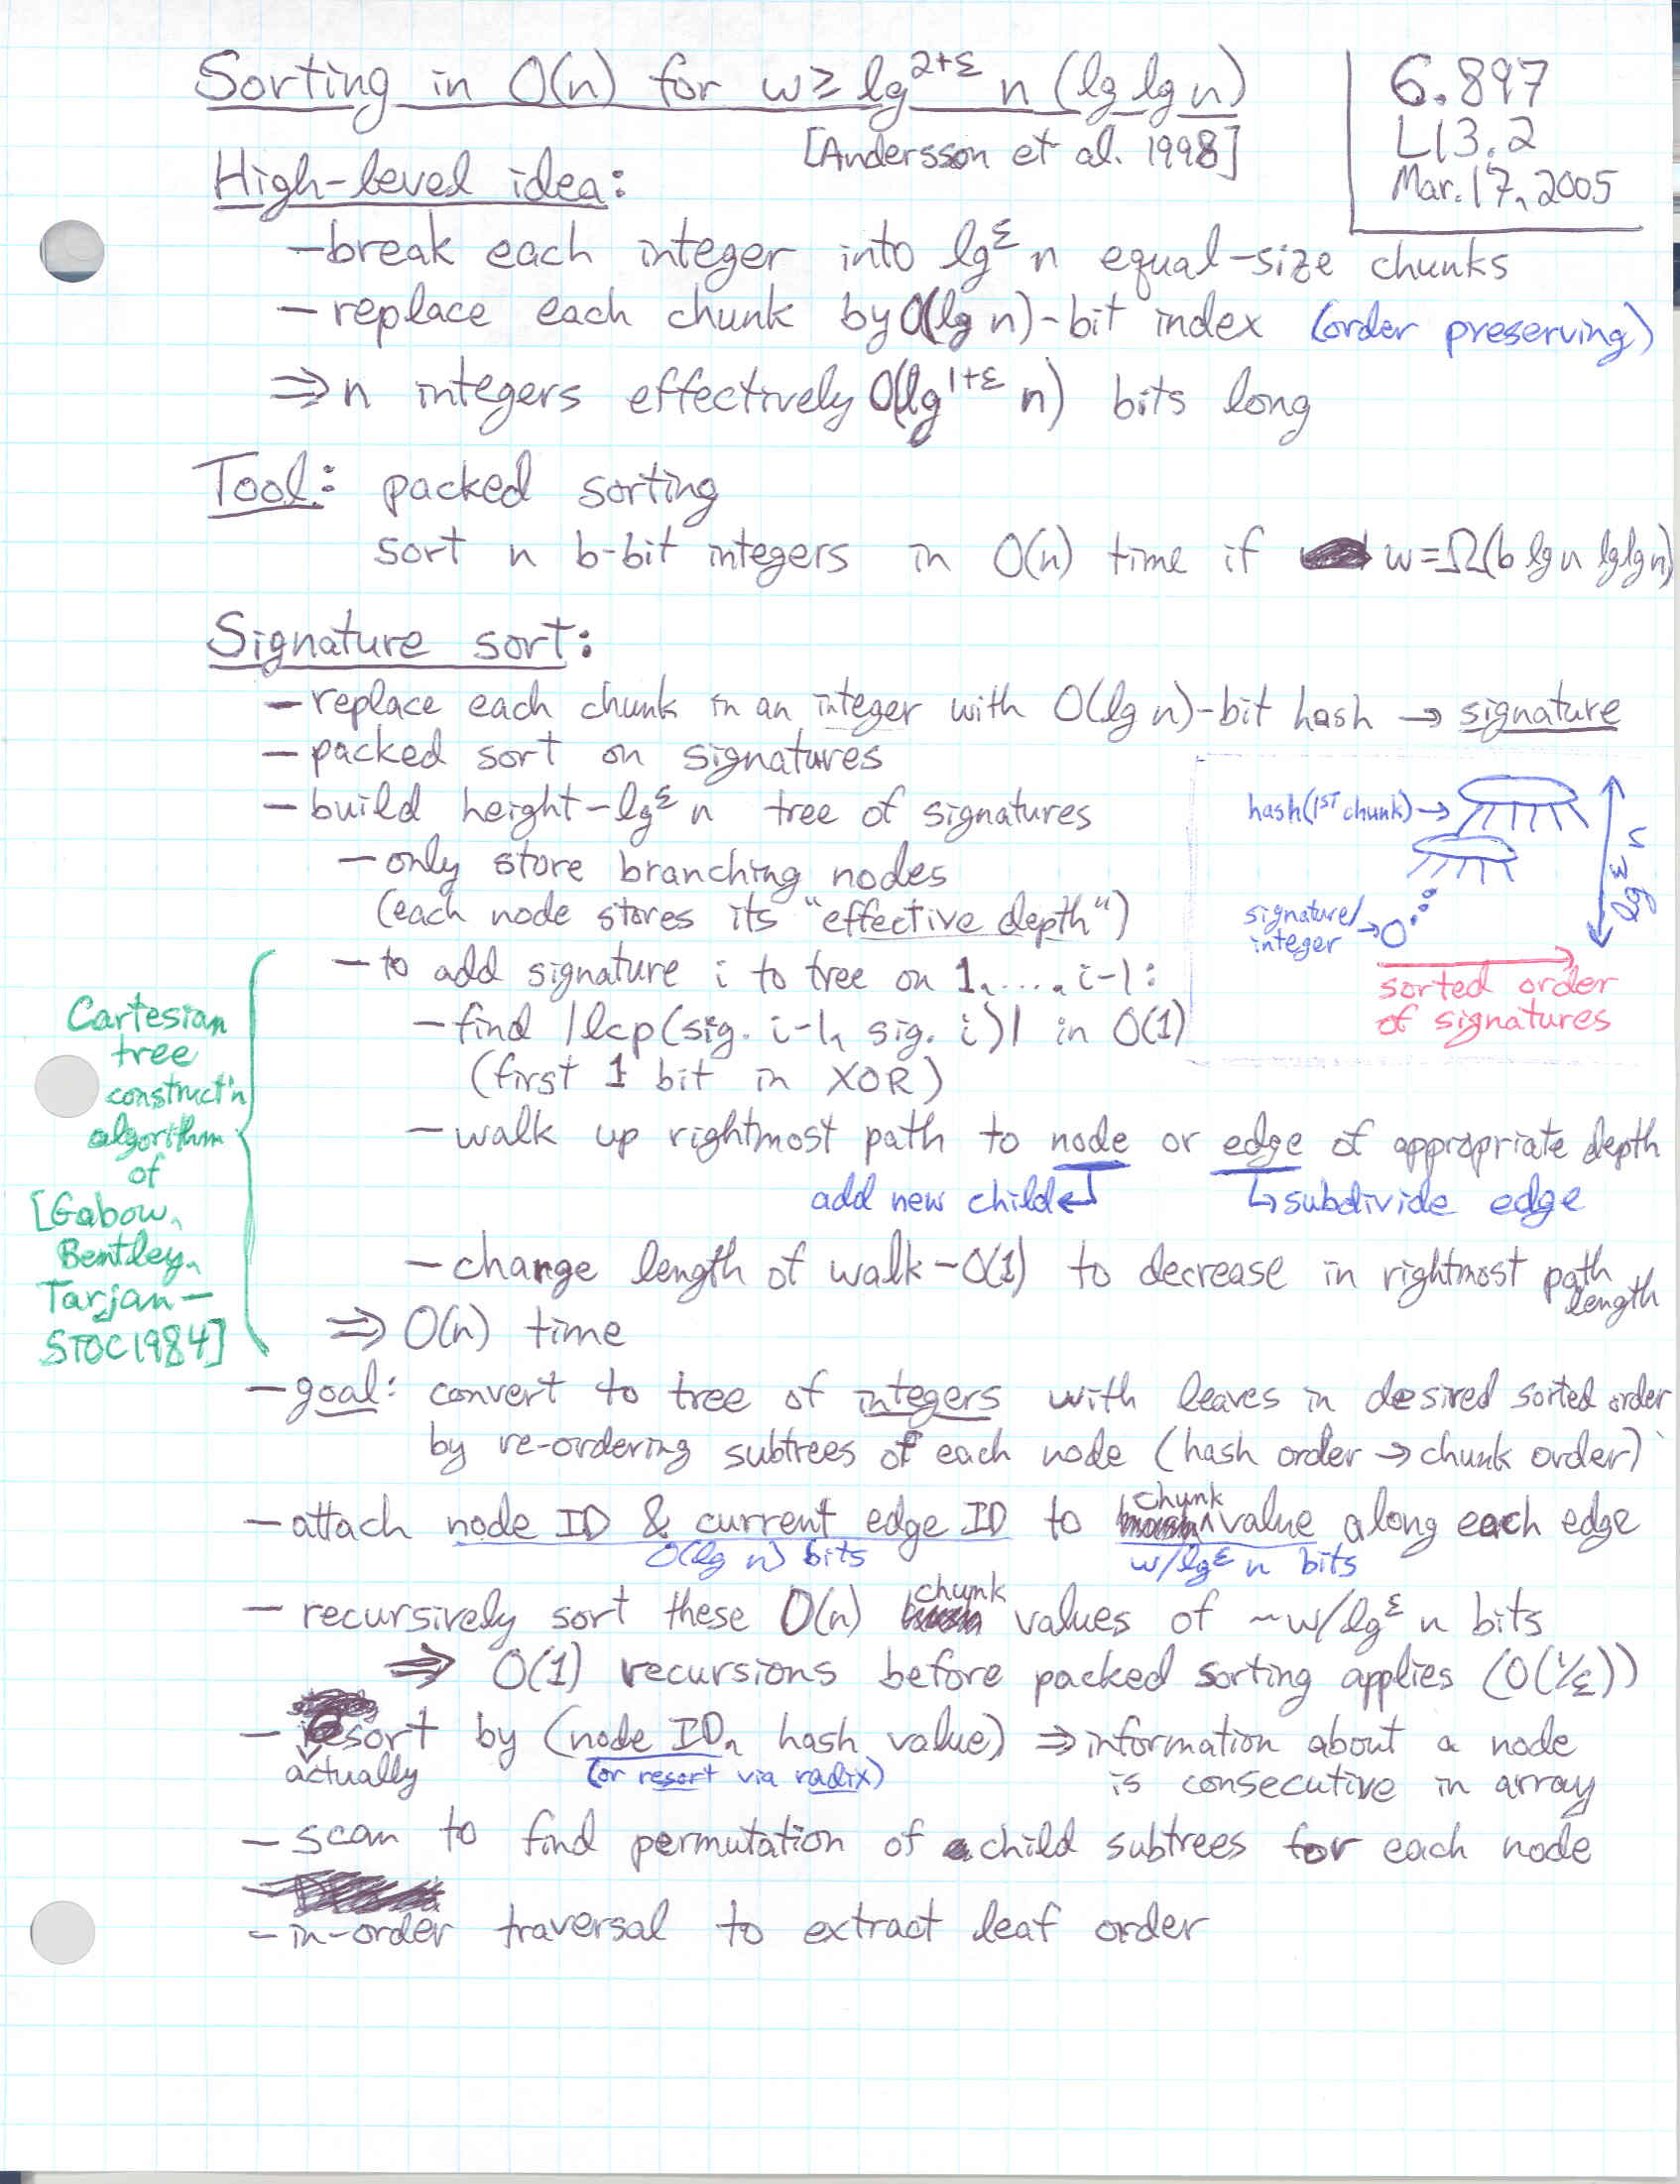 Sorting in O(n) for w ≥ lg^{2+ε} n (lg lg n)
[Andersson et al. 1998]
6.897
L13.2
Mar. 17, 2005
High-level idea:
– break each integer into lg^ε n equal-size chunks
– replace each chunk by O(lg n)-bit index (order preserving)
⇒ n integers effectively O(lg^{1+ε} n) bits long
Tool: packed sorting
sort n b-bit integers in O(n) time if w=Ω(b lg n lg lg n)
Signature sort:
– replace each chunk in an integer with O(lg n)-bit hash → signature
– packed sort on signatures
– build height-lg^ε n tree of signatures
– only store branching nodes
(each node stores its "effective depth")
hash(1ST chunk)→
lg^ε n
signature/
integer →
sorted order
of signatures
– to add signature i to tree on 1, ...., i-1:
– find |lcp(sig. i-1, sig. i)| in O(1)
(first 1 bit in XOR)
– walk up rightmost path to node or edge of appropriate depth
add new child ↵
↳ subdivide edge
– charge length of walk – O(1) to decrease in rightmost path length
⇒ O(n) time
Cartesian
tree
construct'n
algorithm
of
[Gabow,
Bentley,
Tarjan –
STOC 1984]
– goal: convert to tree of integers with leaves in desired sorted order
by re-ordering subtrees of each node (hash order → chunk order)
– attach node ID & current edge ID to chunk value along each edge
O(lg n) bits
w/lg^ε n bits
– recursively sort these O(n) chunk values of ~w/lg^ε n bits
⇒ O(1) recursions before packed sorting applies (O(1/ε))
– actually sort by (node ID, hash value) ⇒ information about a node
(or resort via radix)
is consecutive in array
– scan to find permutation of child subtrees for each node
– in-order traversal to extract leaf order